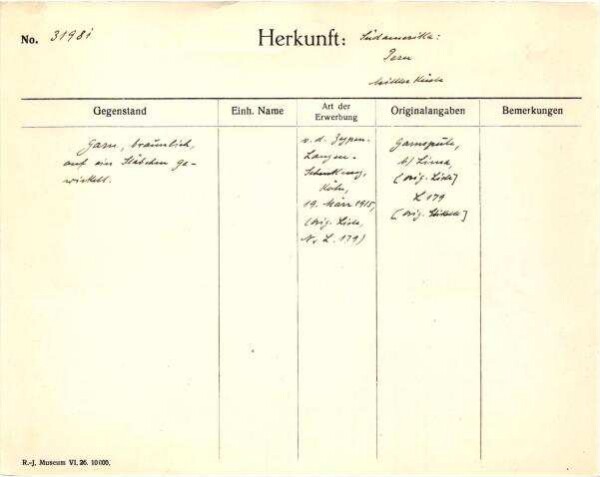 No. 31981
Herkunft: Südamerika:
Peru
Mittlere Küste
Gegenstand
Einh. Name
Art der
Erwerbung
Originalangaben
Bemerkungen
Garn, bräunlich,
auf ein Stäbchen ge-
wickelt.
v. d. Zypen-
Langen-
Schenkung,
Köln,
19. März 1915,
(orig. Liste,
Nr L. 179)
Garnspule,
b/ Lima,
[orig. Liste]
L 179
[orig.
R.-J. Museum VI. 26. 10000.